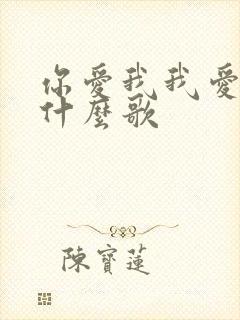 你愛我我愛
什麼歌
陳寶蓮